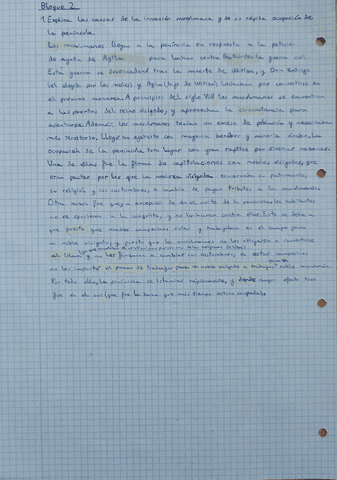 Bloque 2
1. Explica las causas de la invasión musulmana y de su rápida ocupación de
la península.
Los musulmanes llegan a la península en respuesta a la petición
de ayuda de Agila para luchar contra guerra civil.
Esta guerra se desencadenó tras la muerte de Witiza, y Don Rodrigo
(el elegido por los nobles) y Agila (hijo de Witiza) luchaban por convertirse en
el próximo monarca. A principios del siglo VIII los musulmanes se encontraban
a las puertas del reino visigodo, y aprovechan la circunstancia para
adentrarse. Además, los musulmanes tenían un exceso de población y necesitaban
más territorio. Llegó un ejército con mayoría bereber y minoría árabe, la
ocupación de la península tuvo lugar con gran rapidez por diversas razones.
Una de ellas fue la firma de capitulaciones con nobles visigodos, que
eran pactos por los que la nobleza visigoda conservaba su patrimonio,
su religión y sus costumbres, a cambio de pagar tributos a los musulmanes.
Otra razón fue que, a excepción de en el norte de la península, los habitantes
no se opusieron a la conquista, y no lucharon contra ellos. Esto se debe a
que puesto que muchos campesinos vivían y trabajaban en el campo para
un noble visigodo, y puesto que los musulmanes no les obligaron a convertirse
al islam y no les forzaron a cambiar sus costumbres, a estos campesinos
no les importó el pasar de trabajar para un noble visigodo a trabajar para un noble musulmán.
Por todo ello, la península se islamizó rápidamente, y donde mayor efecto tuvo
fue en el sur, que fue la zona que más tiempo estuvo ocupada.